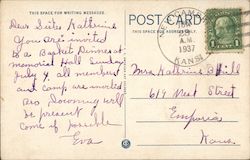 THIS SPACE FOR WRITING MESSAGES
POST CARD
THIS SPACE FOR ADDRESS ONLY.
A.M.
1937
KANS
1
Dear Sister Katherine
You are invited
to a Basket Dinner at
memorial Hall Sunday
July 4. all members
and camp are invited
Downing will
be present if
Come if possible
Eva
Mrs Katherine Hill
619 West Street
Emporia
Kans.